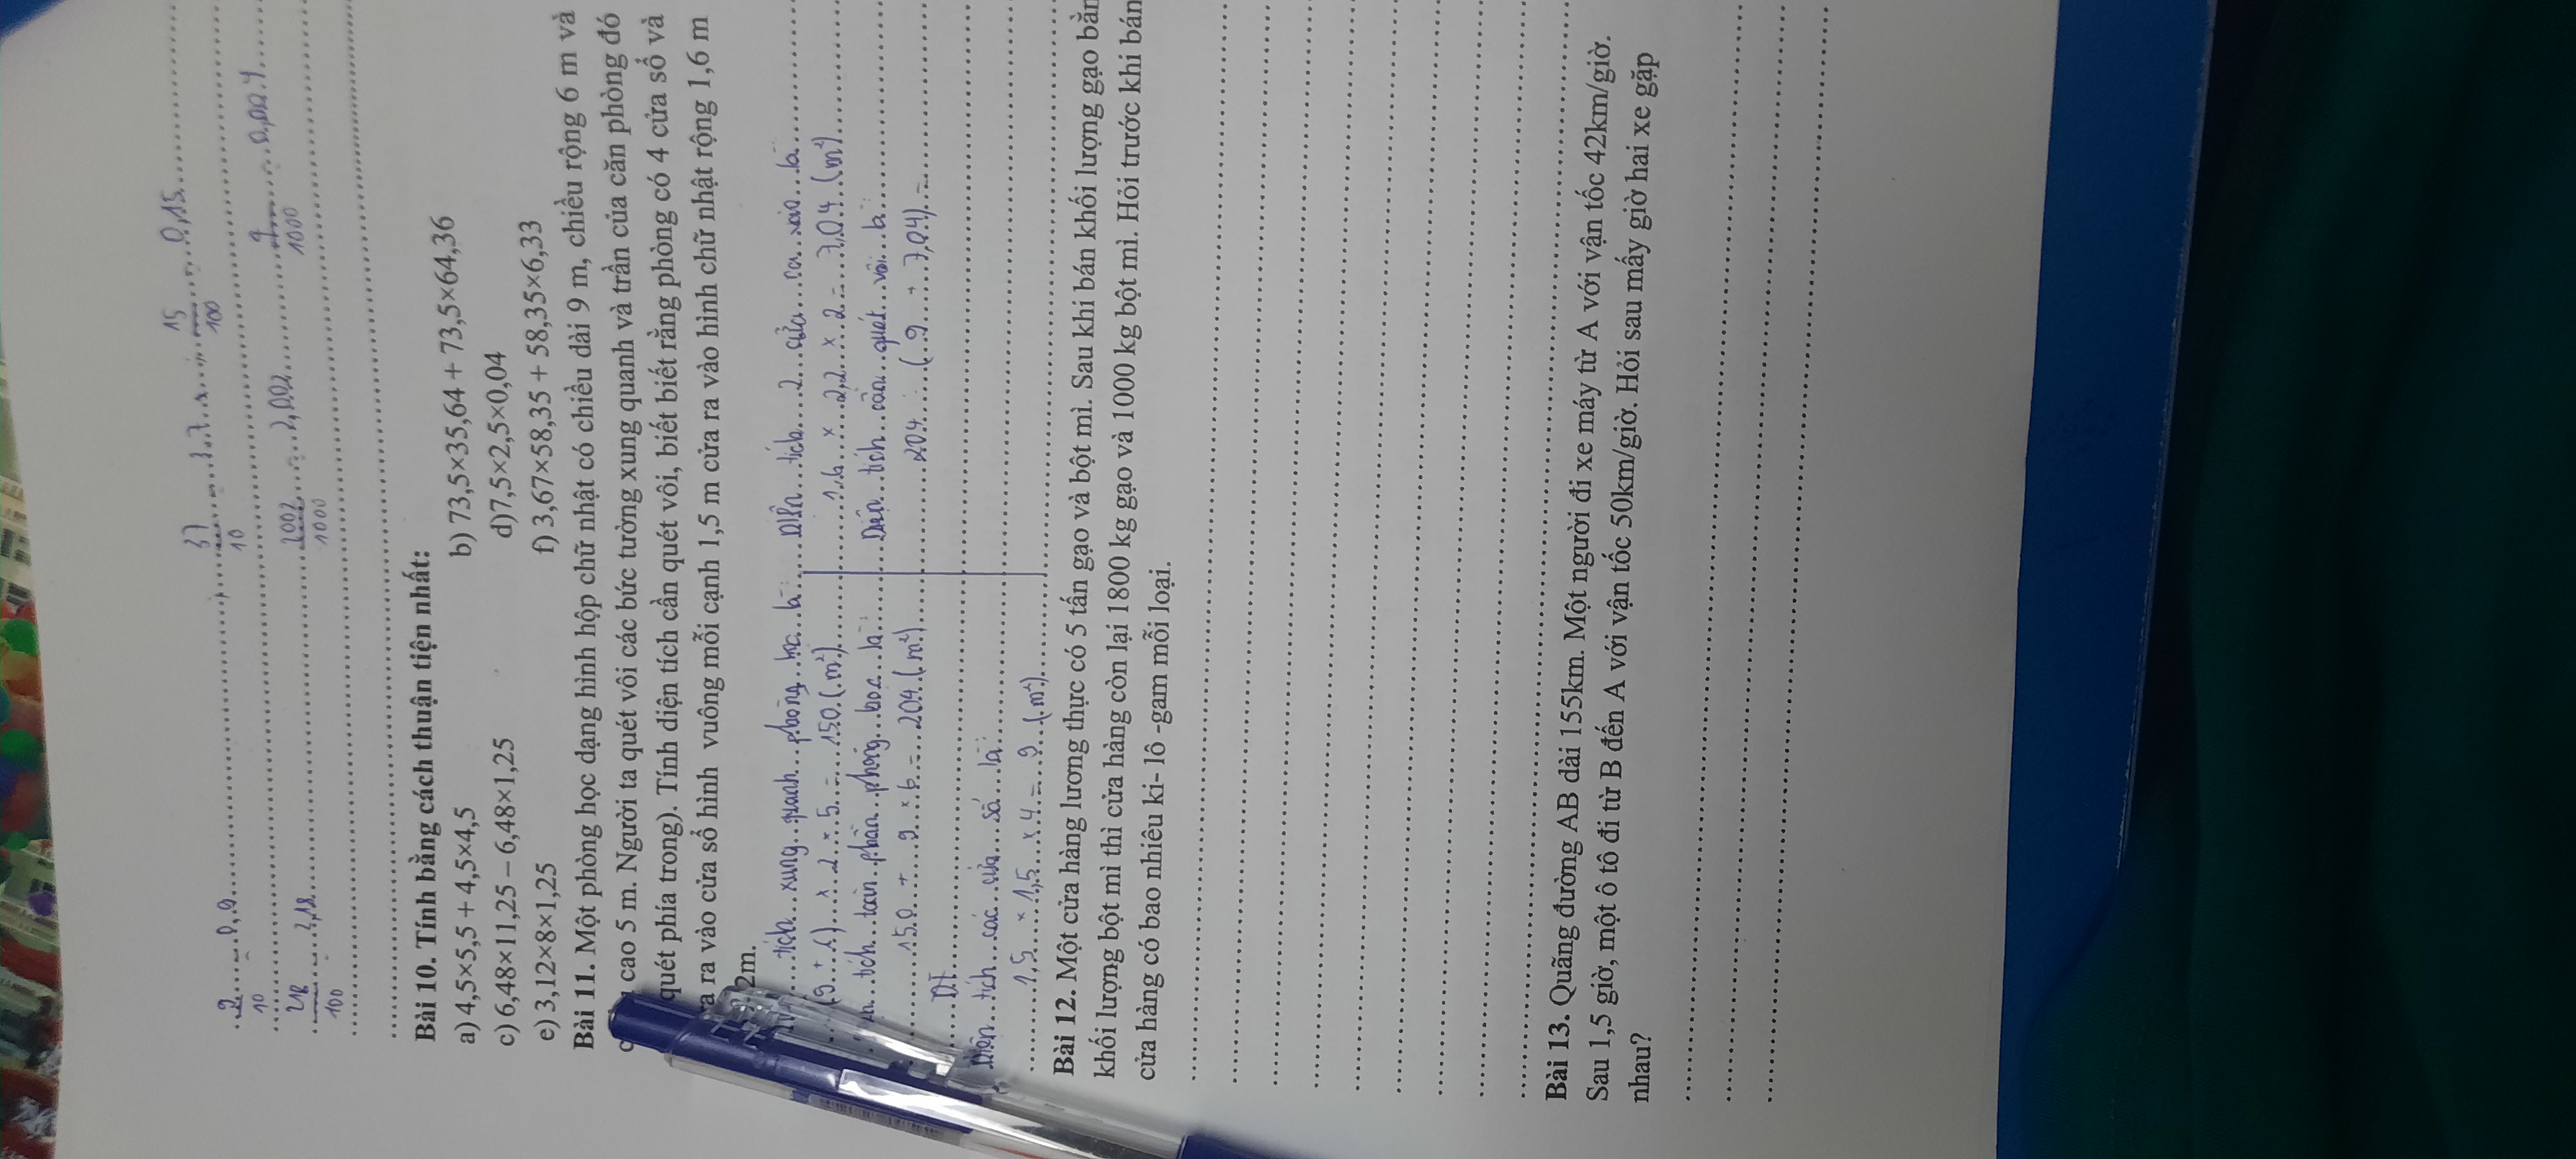 37/10 = 3,7 15/100 = 0,15
9/10 = 0,9
2002/1000 = 2,002
218/100 = 2,18 4/1000 = 0,004
Bài 10. Tính bằng cách thuận tiện nhất:
a) 4,5×5,5 + 4,5×4,5 b) 73,5×35,64 + 73,5×64,36
c) 6,48×11,25 – 6,48×1,25 d)7,5×2,5×0,04
e) 3,12×8×1,25 f) 3,67×58,35 + 58,35×6,33
Bài 11. Một phòng học dạng hình hộp chữ nhật có chiều dài 9 m, chiều rộng 6 m và
cao 5 m. Người ta quét vôi các bức tường xung quanh và trần của căn phòng đó
quét phía trong). Tính diện tích cần quét vôi, biết biết rằng phòng có 4 cửa sổ và
ra vào cửa sổ hình vuông mỗi cạnh 1,5 m cửa ra vào hình chữ nhật rộng 1,6 m
2m.
tích xung quanh phòng học là: Diện tích 2 cửa ra vào là
(9 + 6) × 2 × 5 = 150 (m²) 1,6 × 2,2 × 2 = 7,04 (m²)
tích toàn phần phòng học là: Diện tích cần quét vôi là:
150 + 9 × 6 = 204 (m²) 204 - (9 + 7,04) =
DT
Diện tích các cửa sổ là:
1,5 × 1,5 × 4 = 9 (m²)
Bài 12. Một cửa hàng lương thực có 5 tấn gạo và bột mì. Sau khi bán khối lượng gạo bằn
khối lượng bột mì thì cửa hàng còn lại 1800 kg gạo và 1000 kg bột mì. Hỏi trước khi bán
cửa hàng có bao nhiêu ki- lô -gam mỗi loại.
Bài 13. Quãng đường AB dài 155km. Một người đi xe máy từ A với vận tốc 42km/giờ.
Sau 1,5 giờ, một ô tô đi từ B đến A với vận tốc 50km/giờ. Hỏi sau mấy giờ hai xe gặp
nhau?